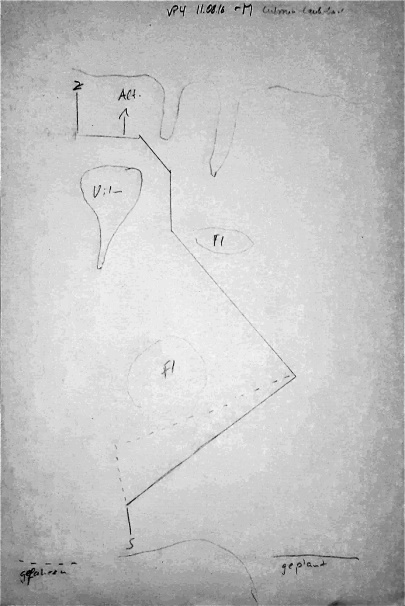 VP4 11.08.16 -M
Z
Alt.
Vil-
Fl
Fl
S
gefahren
geplant